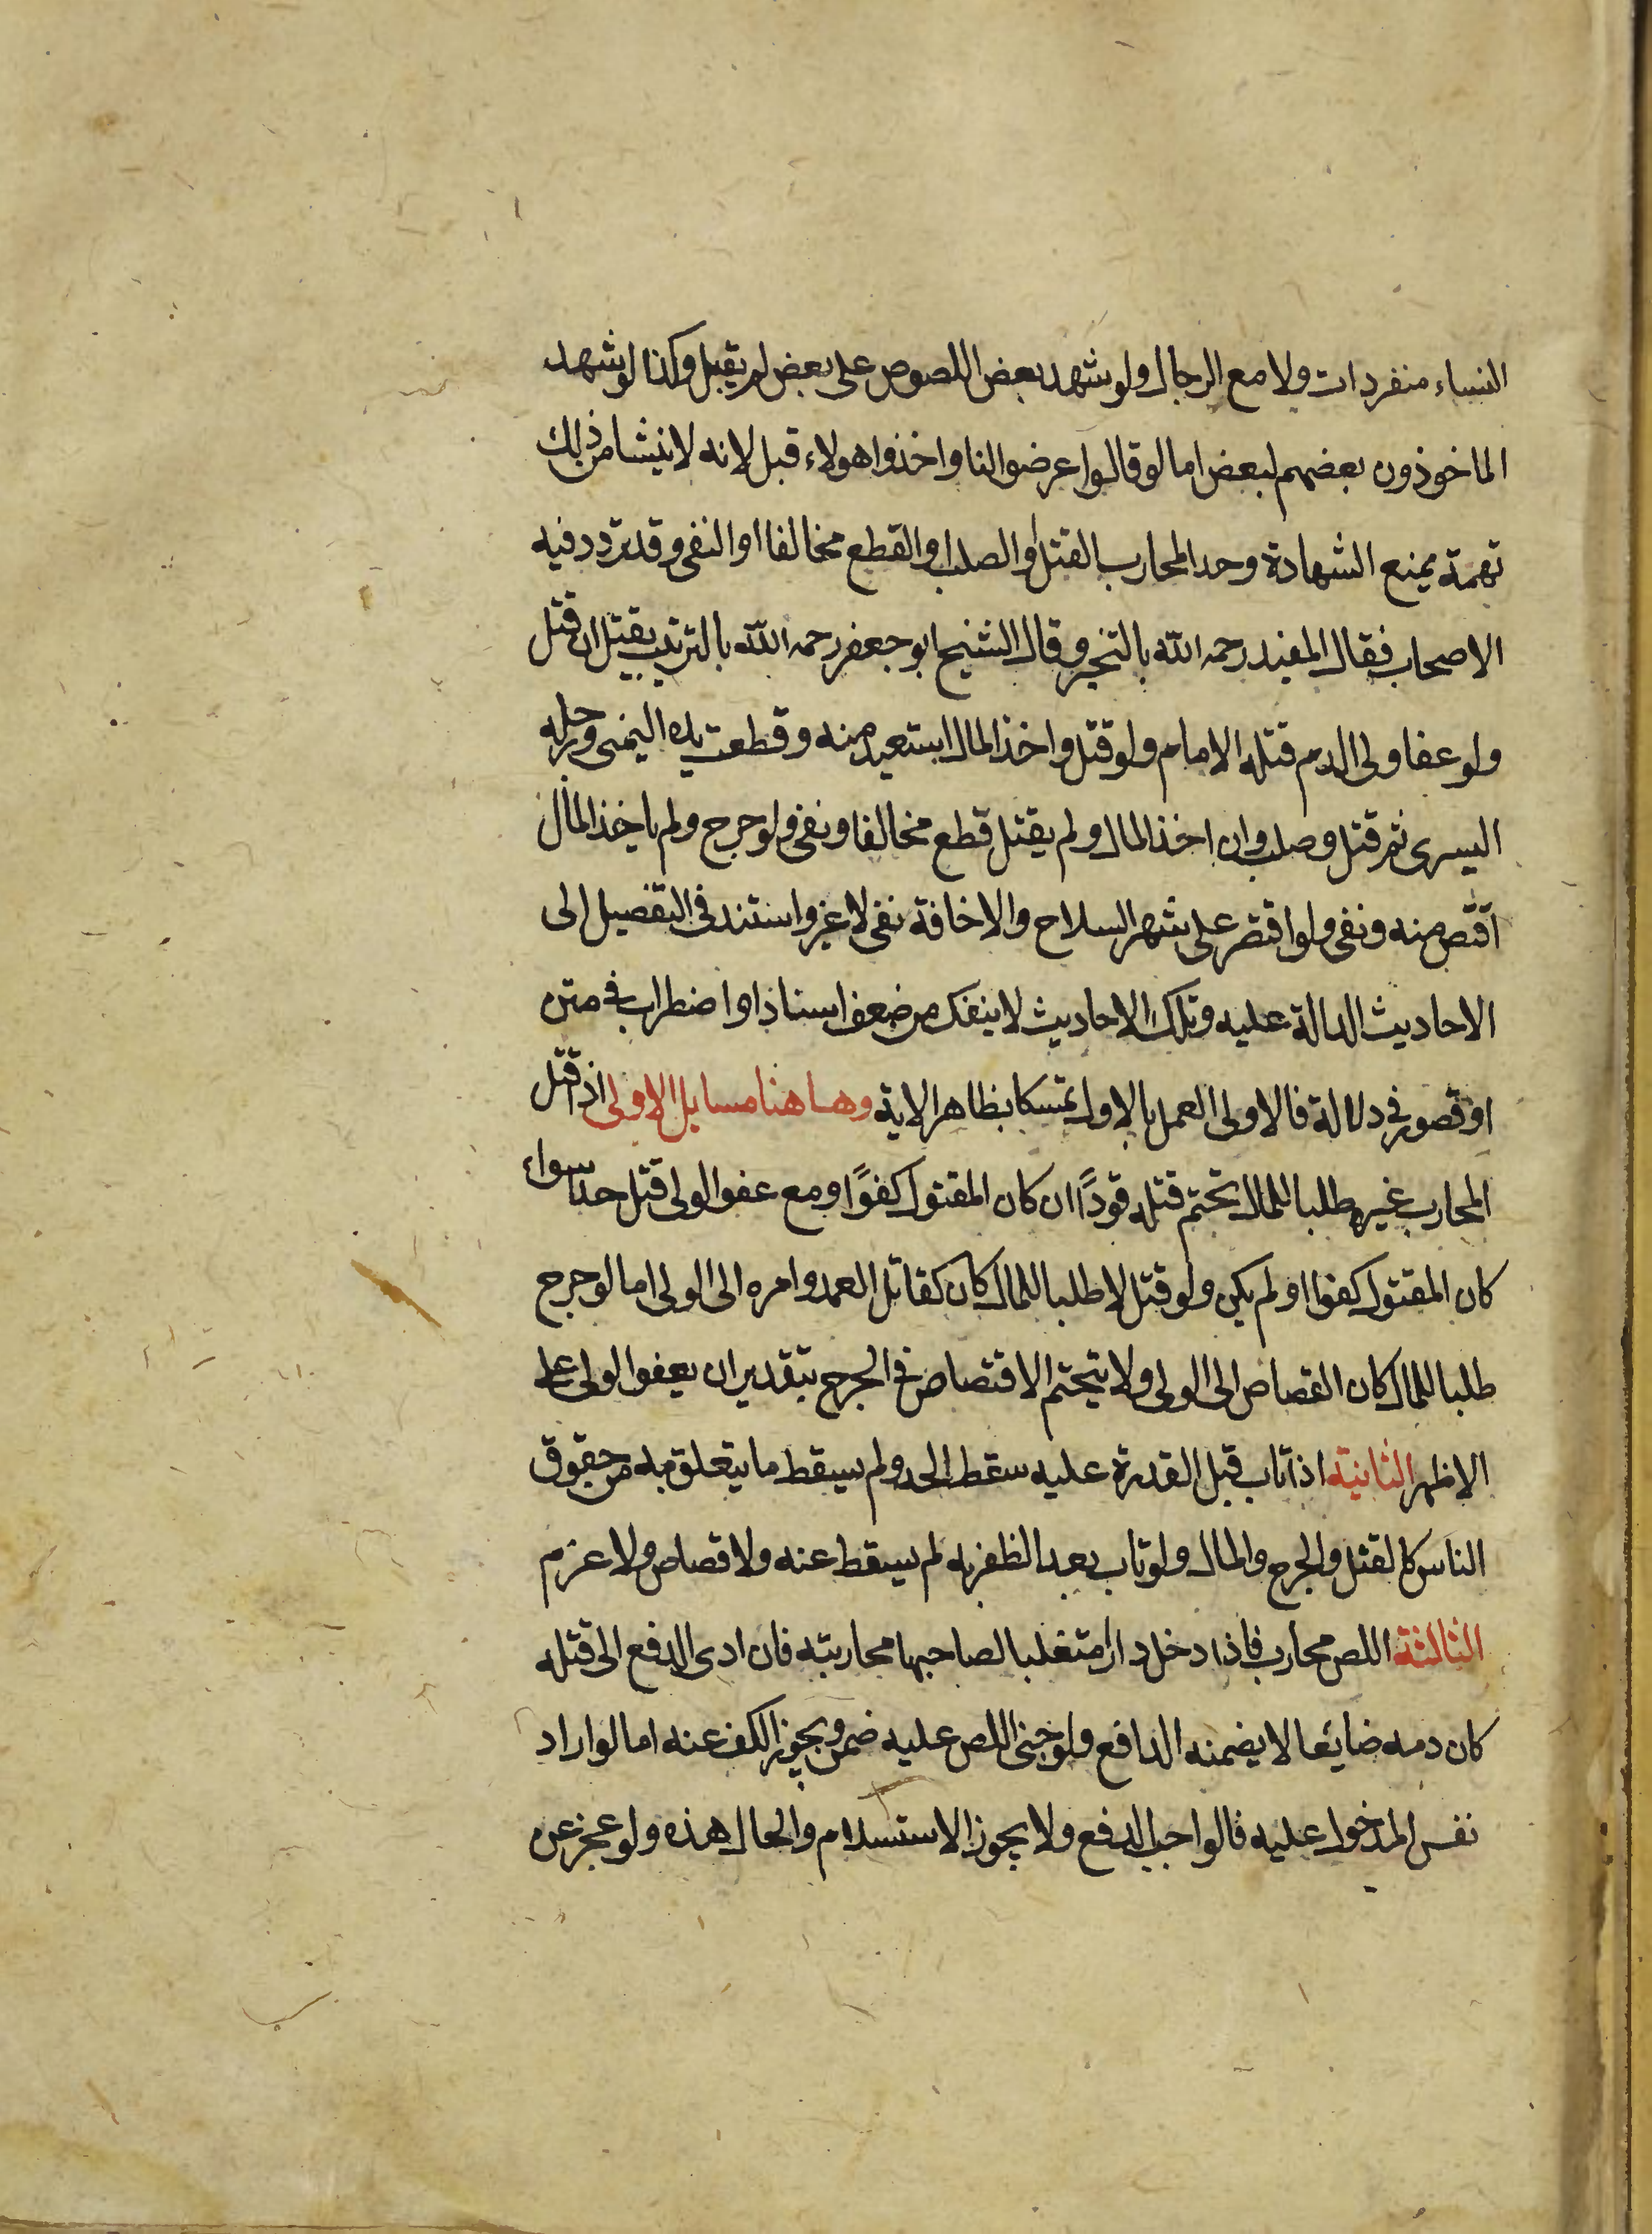 النساء منفردات ولا مع الرجال ولو شهد بعض اللصوص على بعض لم يقبل وكذا لو شهد
الماخوذون بعضهم لبعض اما لو قالوا عرضوا لنا واخذوا هولاء قبل لانه لا ينشا من ذلك
تهمة يمنع الشهادة وحد المحارب القتل او الصلب او القطع مخالفا او النفى وقد تردد فيه
الاصحاب فقال المفيد رحمه الله بالتخير وقال الشيخ ابو جعفر رحمه الله بالترتيب يقتل ان قتل
ولو عفا ولى الدم قتله الامام ولو قتل واخذ المال استعيد منه وقطعت يده اليمنى ورجله
اليسرى ثم قتل وصلب وان اخذ المال ولم يقتل قطع مخالفا ونفى ولو جرح ولم ياخذ المال
اقتص منه ونفى ولو اقتصر على شهر السلاح والاخافة نفى لا غير واستند فى التفصيل الى
الاحاديث الدالة عليه وتلك الاحاديث لا ينفك من ضعف اسناد او اضطراب فى متن
او قصور فى دلالة فالاولى العمل بالاول تمسكا بظاهر الاية وهاهنا مسايل الاولى اذا قتل
المحارب غيره طلبا للمال تحتم قتله قودًا ان كان المقتول كفوًا ومع عفو الولى قتل حدا سواء
كان المقتول كفوا او لم يكن ولو قتل لا طلبا للمال كان كقاتل العمد وامره الى الولى اما لو جرح
طلبا للمال كان القصاص الى الولى ولا يتحتم الاقتصاص فى الجرح بتقدير ان يعفو الولى على
الاظهر الثانية اذا تاب قبل القدرة عليه سقط الحد ولم يسقط ما يتعلق به من حقوق
الناس كالقتل والجرح والمال ولو تاب بعد الظفر به لم يسقط عنه ولا قصاص ولا غرم
الثالثة اللص محارب فاذا دخل دارا متغلبا لصاحبها محاربته فان ادى الدفع الى قتله
كان دمه ضايعا لا يضمنه الدافع ولو جنى اللص عليه ضمن ويجوز الكف عنه اما لو اراد
نفس المدخول عليه فالواجب الدفع ولا يجوز الاستسلام والحال هذه ولو عجز عن